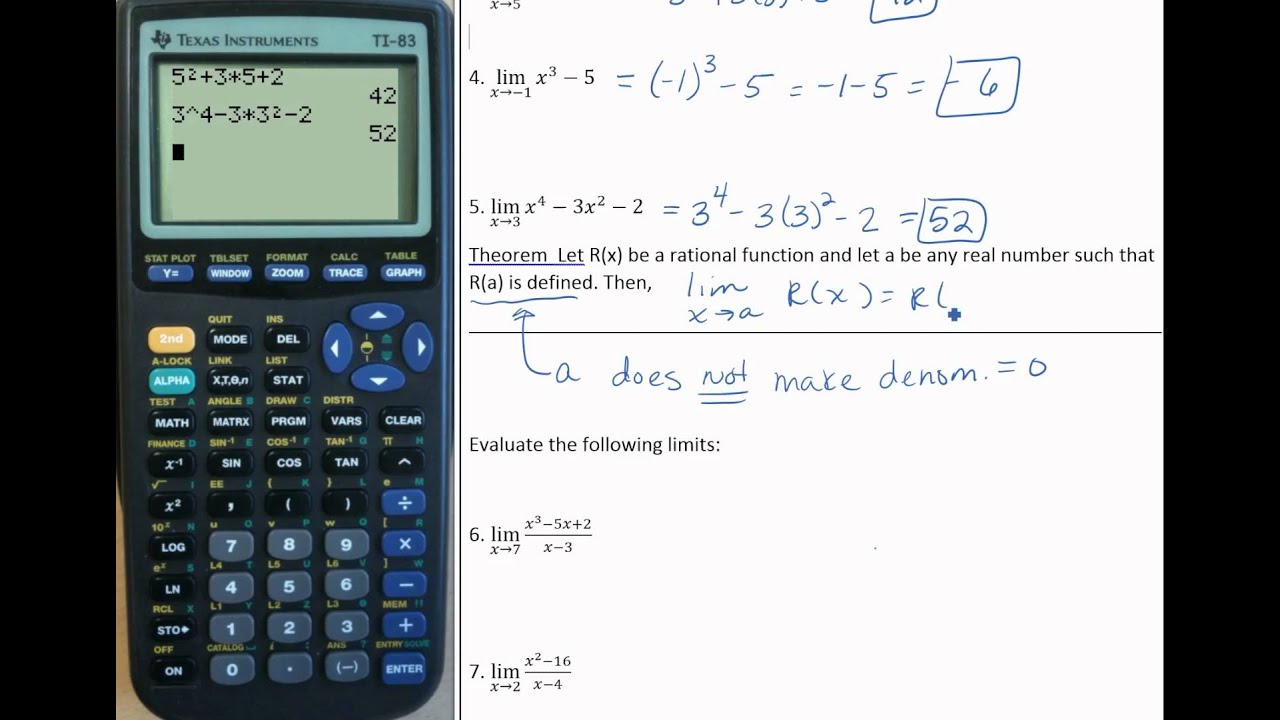 TEXAS INSTRUMENTS TI-83
5²+3*5+2
42
3^4-3*3²-2
52
STAT PLOT TBLSET FORMAT CALC TABLE
Y= WINDOW ZOOM TRACE GRAPH
QUIT INS
2nd MODE DEL
A-LOCK LINK LIST
ALPHA X,T,Θ,n STAT
TEST A ANGLE B DRAW C DISTR
MATH MATRX PRGM VARS CLEAR
FINANCE D SIN⁻¹ E COS⁻¹ F TAN⁻¹ G π H
x⁻¹ SIN COS TAN ^
√ I EE J { K } L e M
x² , ( ) ÷
10ˣ N u O v P w Q [ R
LOG 7 8 9 ×
eˣ S L4 T L5 U L6 V ] W
LN 4 5 6 −
RCL X L1 Y L2 Z L3 θ MEM "
STO▸ 1 2 3 +
OFF CATALOG ␣ i : ANS ? ENTRY SOLVE
ON 0 . (−) ENTER
x→5
4. lim x→−1 x³ − 5 = (-1)³ - 5 = -1-5 = -6
5. lim x→3 x⁴ − 3x² − 2 = 3⁴ - 3(3)² - 2 = 52
Theorem Let R(x) be a rational function and let a be any real number such that
R(a) is defined. Then, lim x→a R(x) = R(
a does not make denom. = 0
Evaluate the following limits:
6. lim x→7 x³−5x+2 / x−3
7. lim x→2 x²−16 / x−4